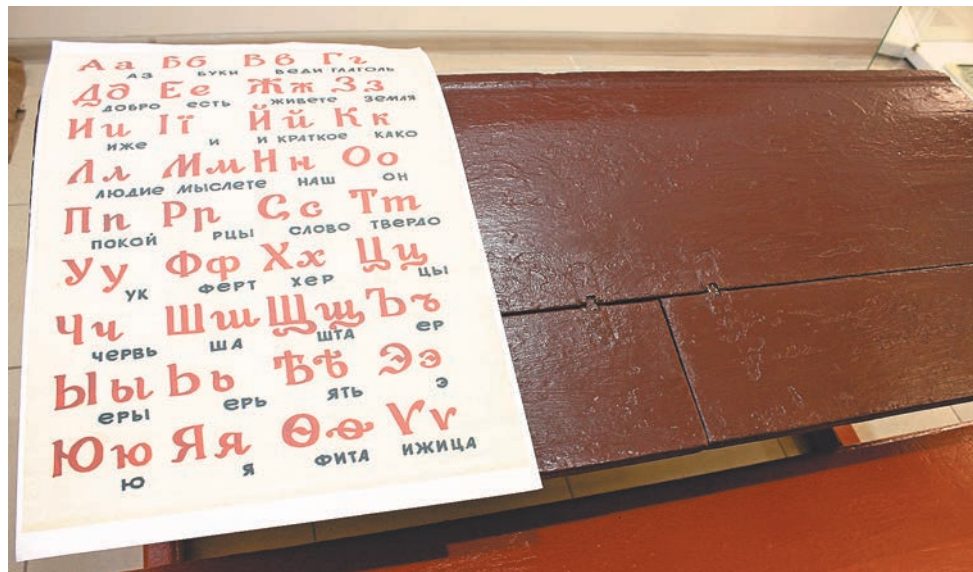 Аа Бб Вв Гг
аз буки веди глаголь
Дд Ее Жж Зз
добро есть живете земля
Ии Її Йй Кк
иже и и краткое како
Лл Мм Нн Оо
людие мыслете наш он
Пп Рр Сс Тт
покой рцы слово твердо
Уу Фф Хх Цц
ук ферт хер цы
Чч Шш Щщ Ъъ
червь ша шта ер
Ыы Ьь Ѣѣ Ээ
еры ерь ять э
Юю Яя Ѳѳ Ѵѵ
ю я фита ижица